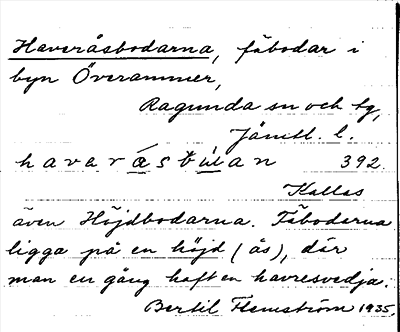 Haveråsbodarna, fäbodar i
byn Överammer,
Ragunda sn och tg,
Jämtl. l.
havaræsbu̇lan 392.
Kallas
även Höjdbodarna. Fäbodarna
ligga på en höjd (ås), där
man en gång haft en havresvedja.
Bertil Flemström 1935.